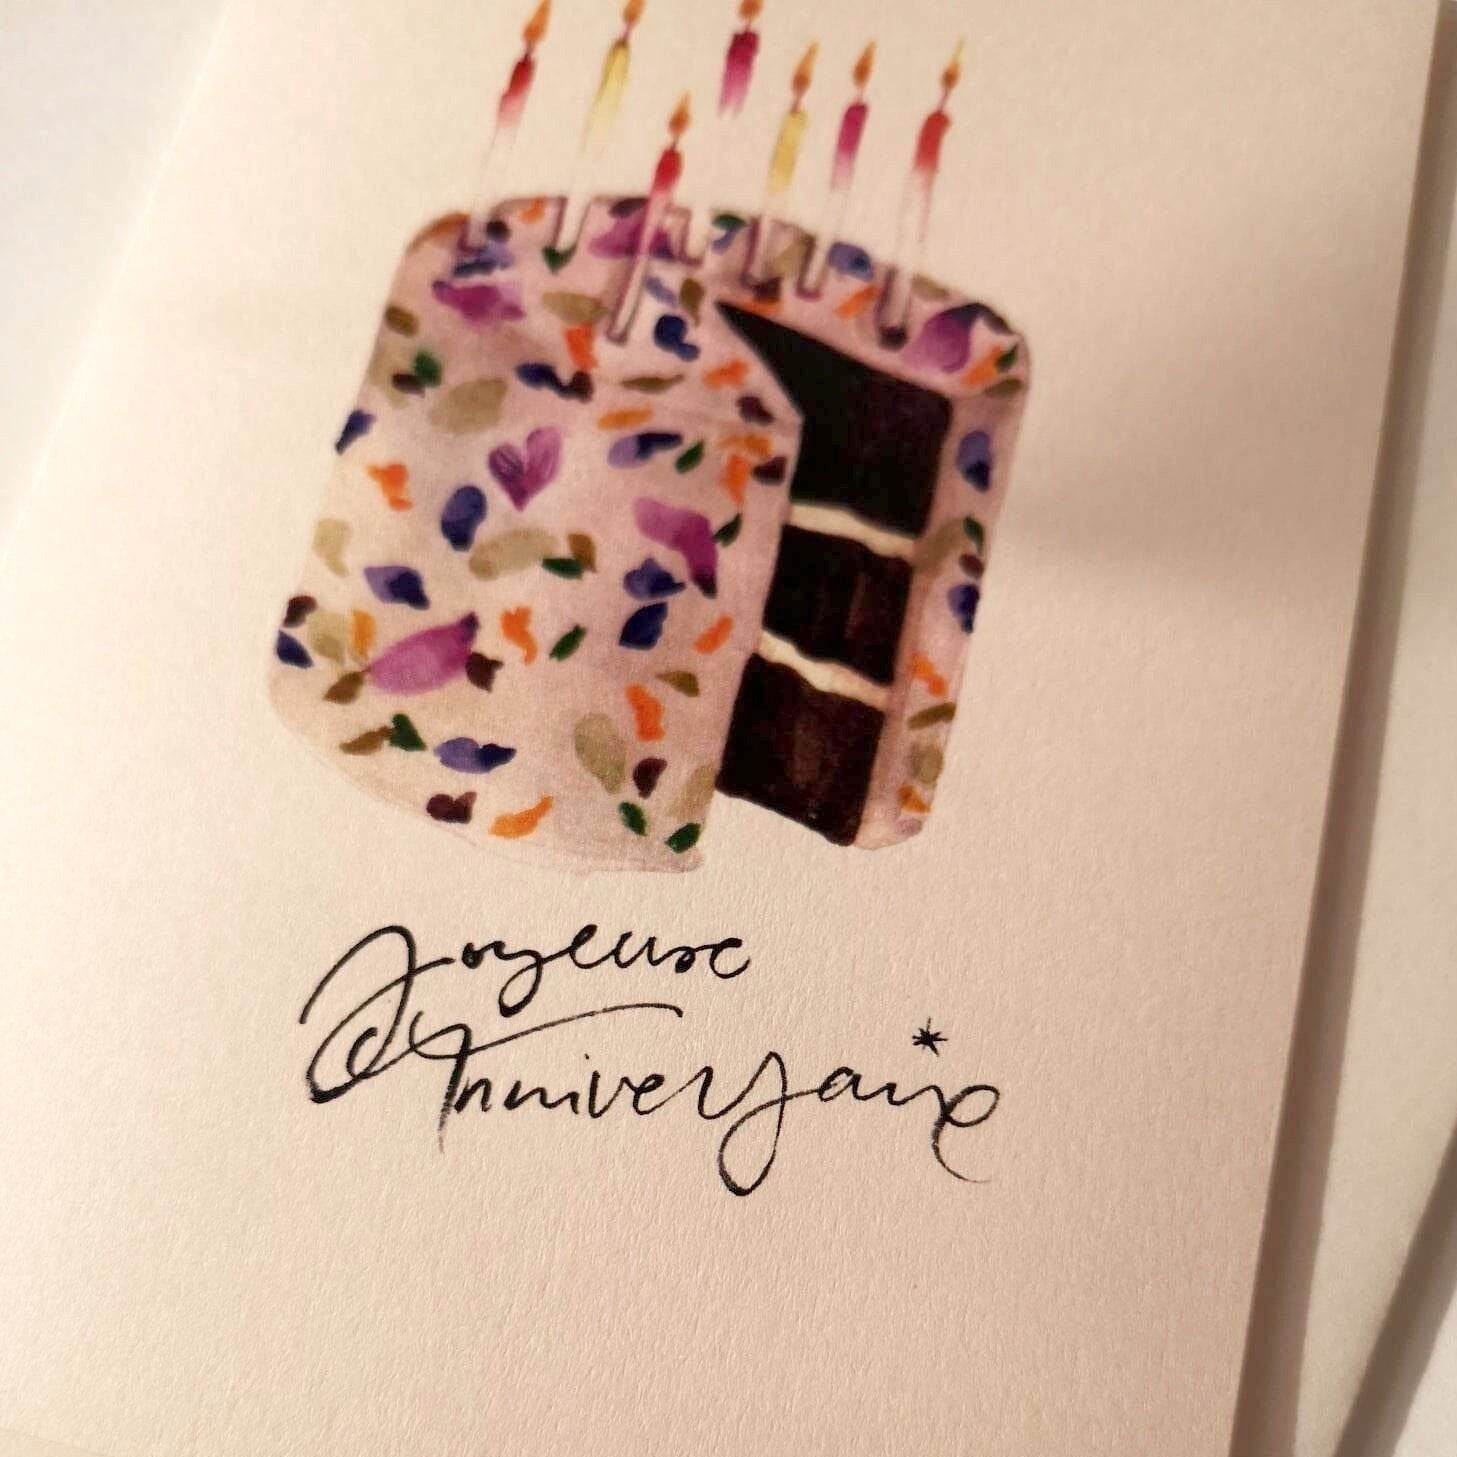 Joyeuse
Anniversaire